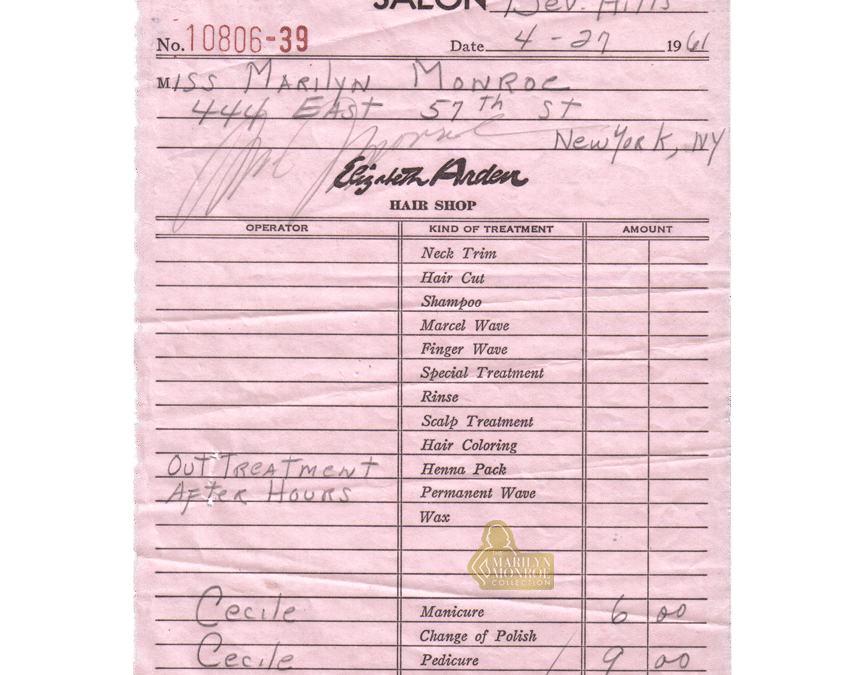 SALON Bev. Hills
No. 10806-39 Date 4-27 1961
MISS MARILYN MONROE
444 EAST 57th ST
New York, NY
Elizabeth Arden
HAIR SHOP
OPERATOR KIND OF TREATMENT AMOUNT
Neck Trim
Hair Cut
Shampoo
Marcel Wave
Finger Wave
Special Treatment
Rinse
Scalp Treatment
Hair Coloring
OUT TREATMENT Henna Pack
AFTER HOURS Permanent Wave
Wax
THE
MARILYN
MONROE
COLLECTION
Cecile Manicure 6 00
Change of Polish
Cecile Pedicure 9 00